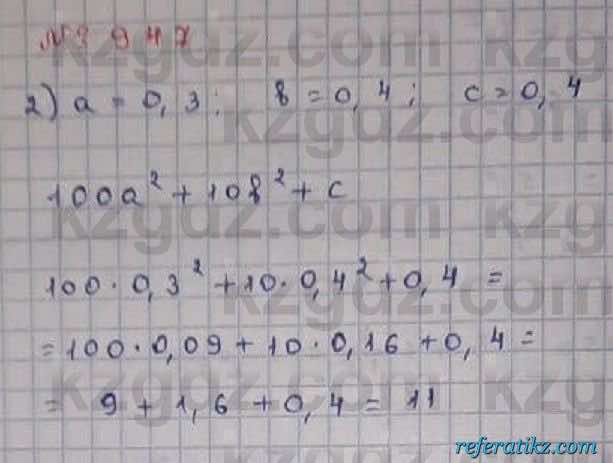 № 947
2) a = 0,3; b = 0,4; c = 0,4
100a² + 10b² + c
100 · 0,3² + 10 · 0,4² + 0,4 =
= 100 · 0,09 + 10 · 0,16 + 0,4 =
= 9 + 1,6 + 0,4 = 11
kzgdz.com
referatikz.com